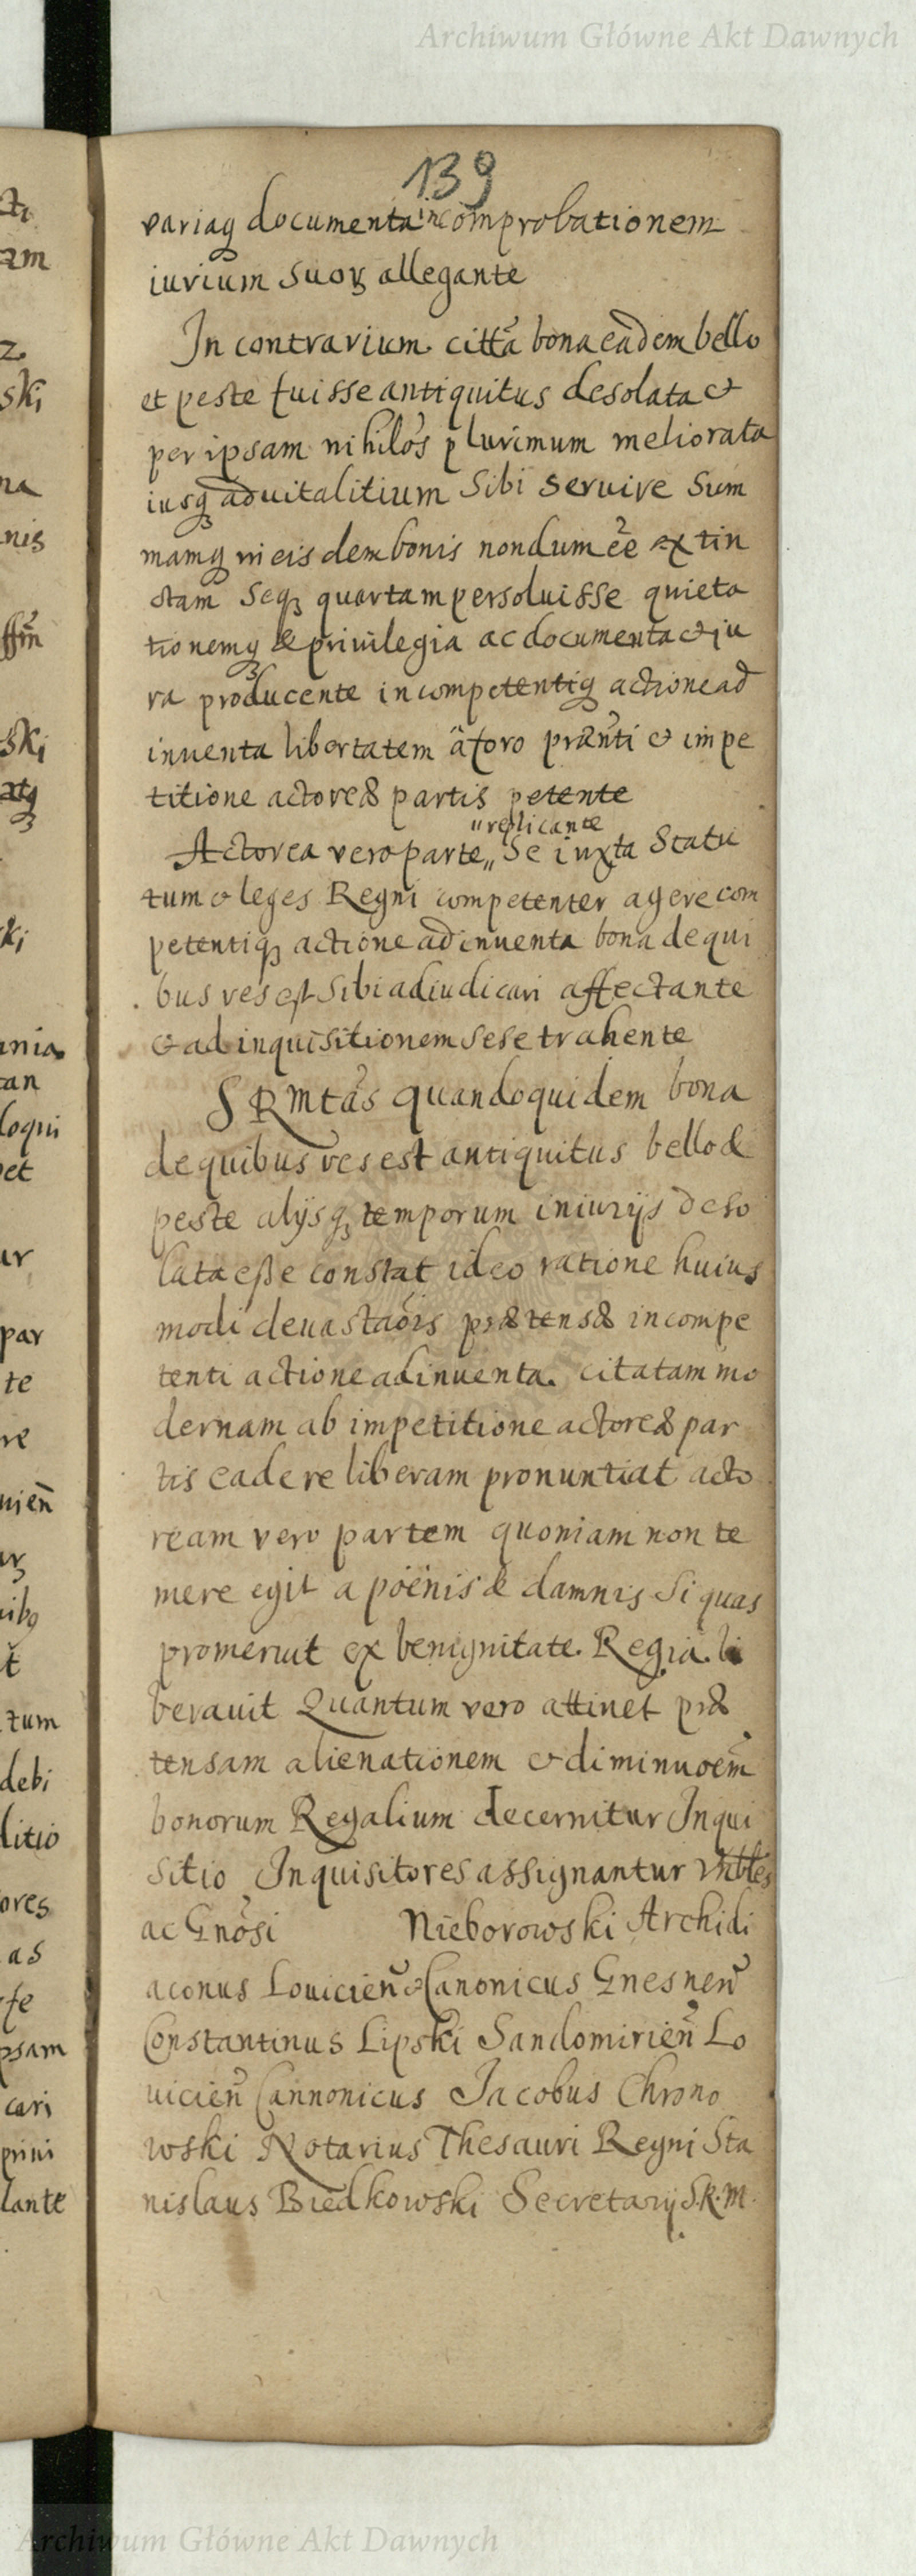 Archiwum Główne Akt Dawnych
139
variaq documenta in comprobationem
iurium suoꝝ allegante
In contrarium cittã bona eadem bello
et peste fuisse antiquitus desolata et
per ipsam nihilos plurimum meliorata
iusq advitalitium sibi servire sum
mamq in eisdem bonis nondum ẽe extin
ctam seq quartam persoluisse quieta
tionemq & privilegia ac documenta et iu
ra producente incompetentiq actione ad
inventa libertatem à foro prænti et impe
titione actoreæ partis petente
"replicante
Actorea vero parte „ se iuxta Statu
tum et leges Regni competenter agere com
petentiq actione adinventa bona de qui
bus res est sibi adiudicari affectante
et ad inquisitionem sese trahente
SRMtas quandoquidem bona
de quibus res est antiquitus bello &
peste alijsq temporum iniurijs deso
lata eße constat ideo ratione huius
modi devastaõis prætensæ incompe
tenti actione adinventa. citatam mo
dernam ab impetitione actoreæ par
tis ea de re liberam pronuntiat acto
ream vero partem quoniam non te
mere egit a poënis & damnis si quas
promeruit ex benignitate Regia li
beravit Quantum vero attinet præ
tensam alienationem et diminuoem̃
bonorum Regalium decernitur Inqui
sitio Inquisitores assignantur Vnbles
ac Gnõsi Nieborowski Archidi
aconus Louicieñ et Canonicus Gnesneñ
Constantinus Lipski Sandomirieñ Lo
uicieñ Cannonicus Jacobus Chrono
wski Notarius Thesauri Regni Sta
nislaus Biedkowski Secretarij S.R.M.
Archiwum Główne Akt Dawnych